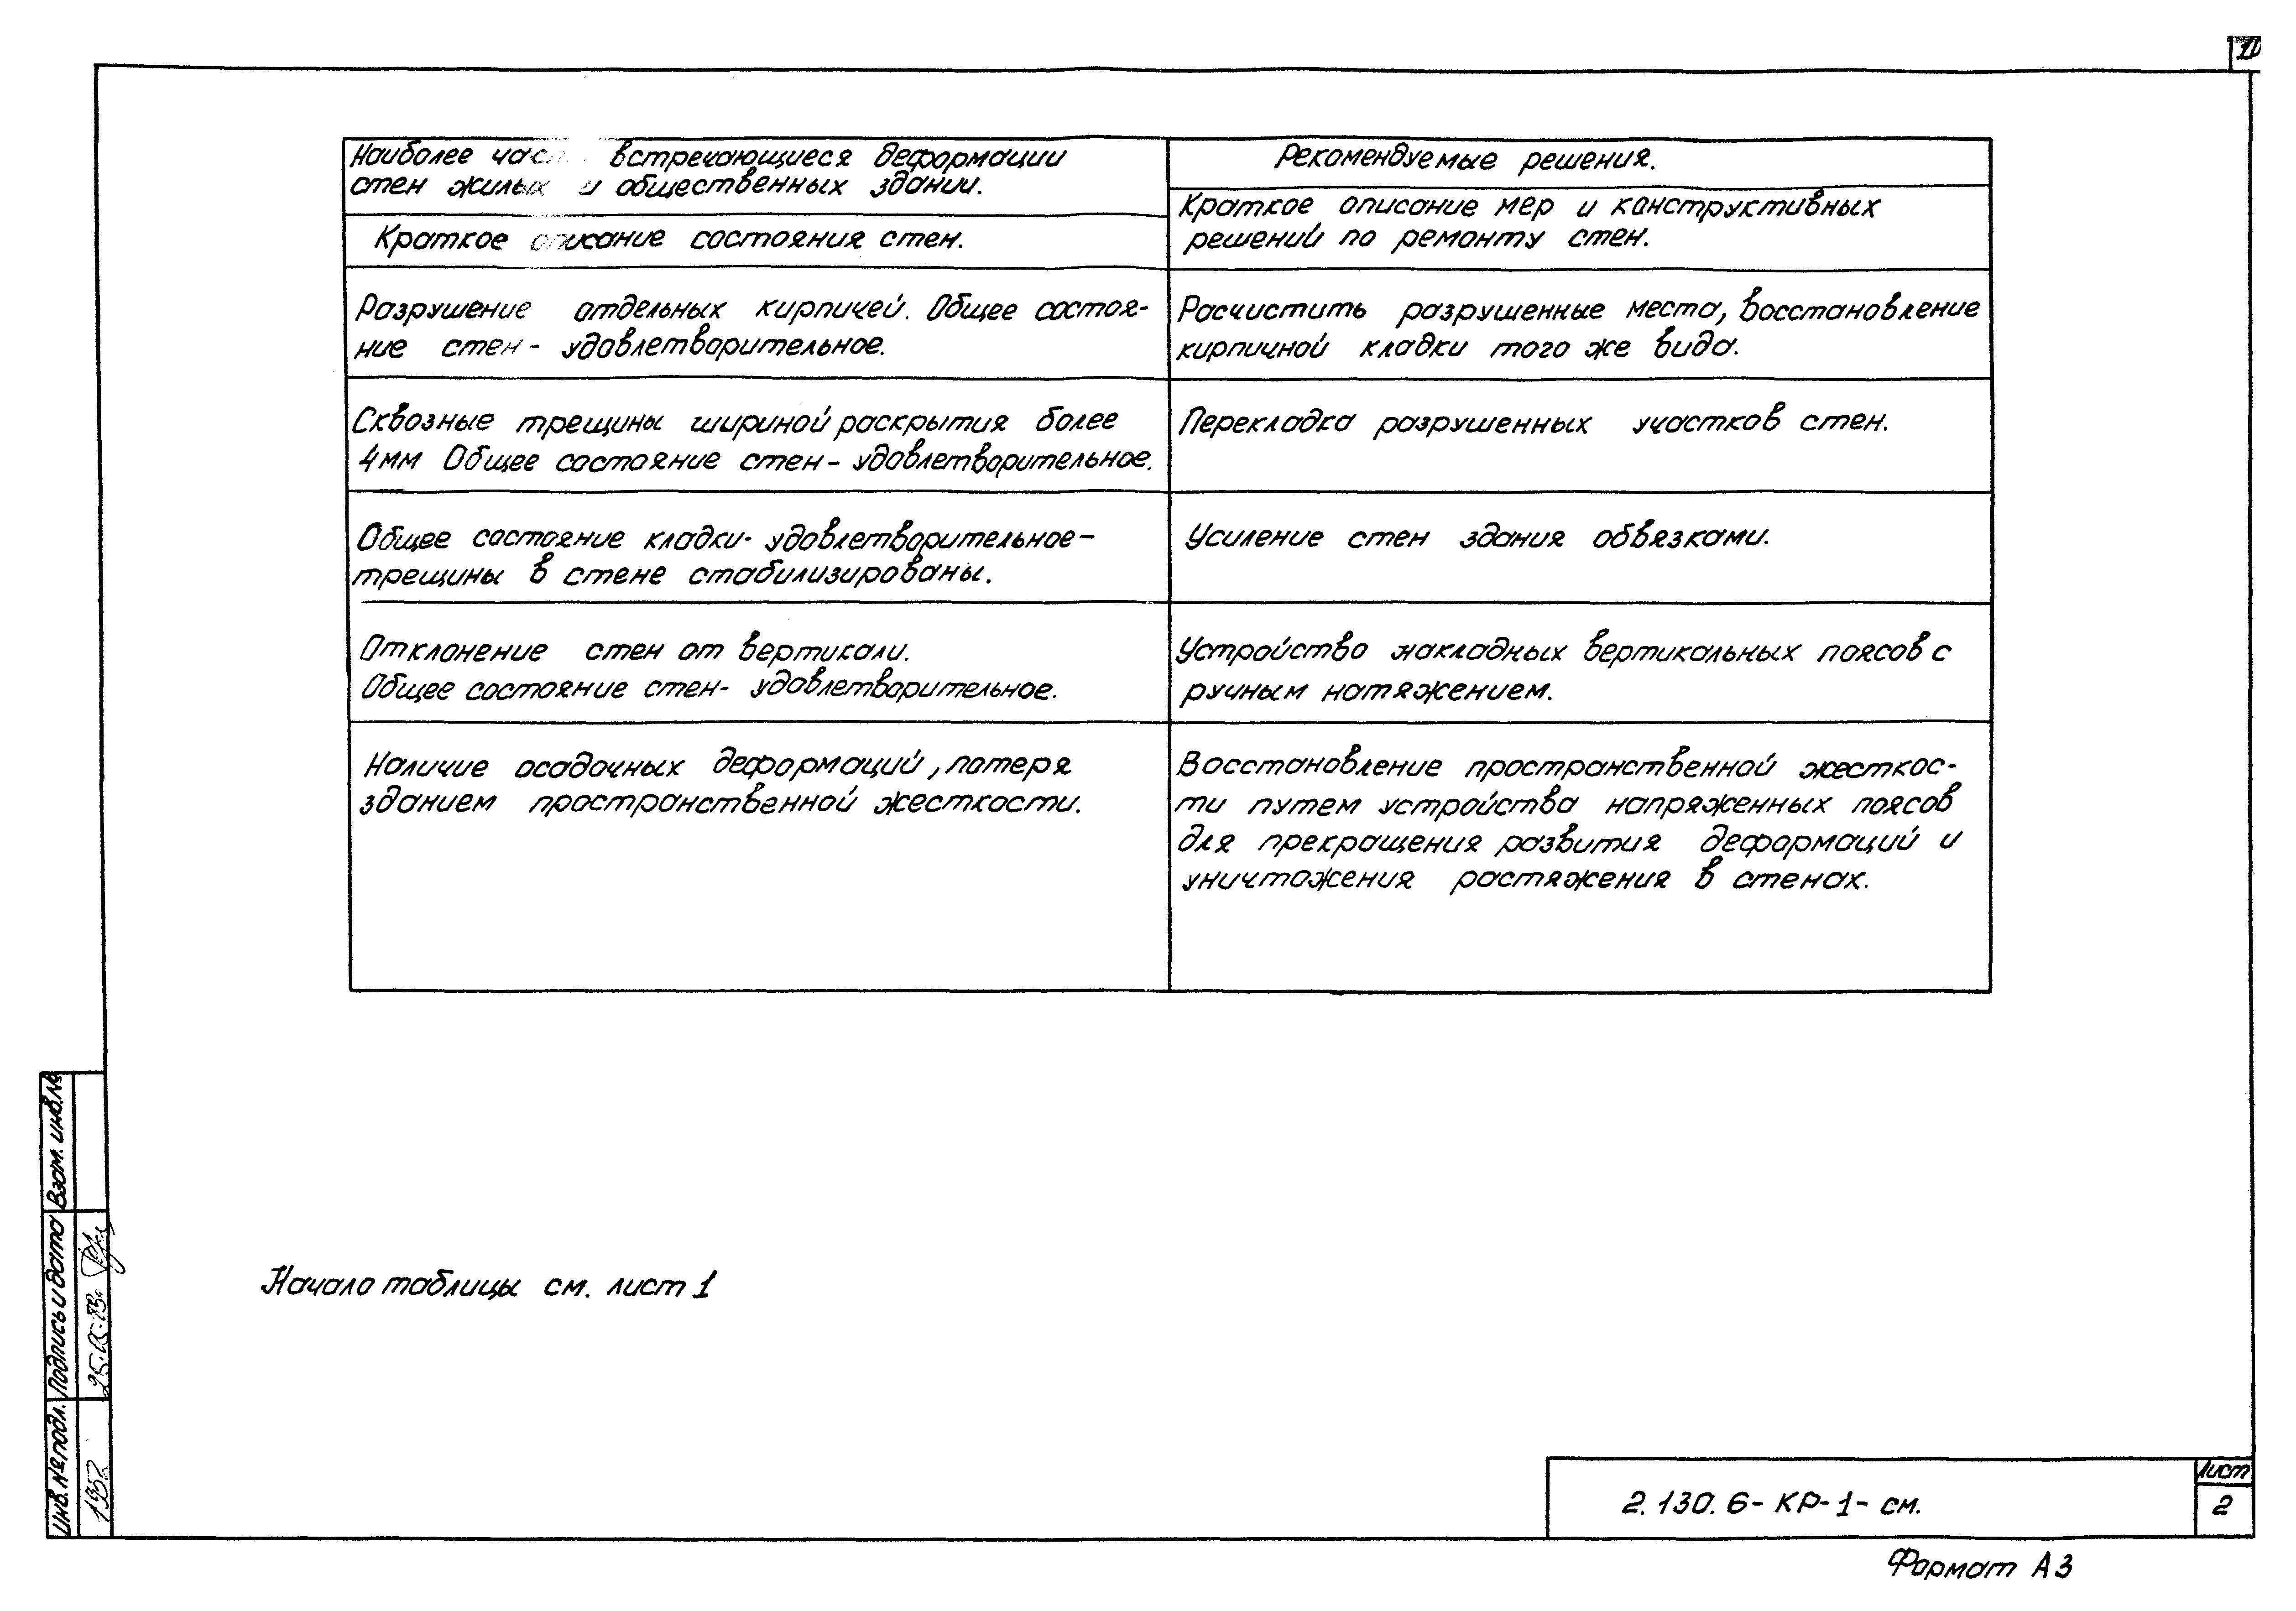 Наиболее встречающиеся деформации
стен жилых и общественных здании.
Краткое описание состояния стен.
Рекомендуемые решения.
Краткое описание мер и конструктивных
решений по ремонту стен.
Разрушение отдельных кирпичей. Общее состоя-
ние стен - удовлетворительное.
Расчистить разрушенные места, восстановление
кирпичной кладки того же вида.
Сквозные трещины шириной раскрытия более
4мм Общее состояние стен - удовлетворительное.
Перекладка разрушенных участков стен.
Общее состояние кладки - удовлетворительное -
трещины в стене стабилизированы.
Усиление стен здания обвязками.
Отклонение стен от вертикали.
Общее состояние стен - удовлетворительное.
Устройство накладных вертикальных поясов с
ручным натяжением.
Наличие осадочных деформаций, потеря
зданием пространственной жесткости.
Восстановление пространственной жесткос-
ти путем устройства напряженных поясов
для прекращения развития деформаций и
уничтожения растяжения в стенах.
Начало таблицы см. лист 1
Взам. инв.№
Подпись и дата
Инв. № подл.
1952
2.130.6-КР-1-см.
Лист
2
Формат А3